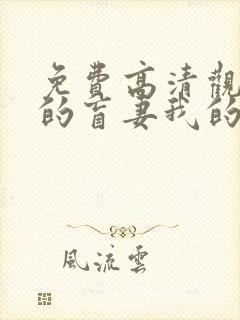 免費高清觀
的盲妻我的
風流雲